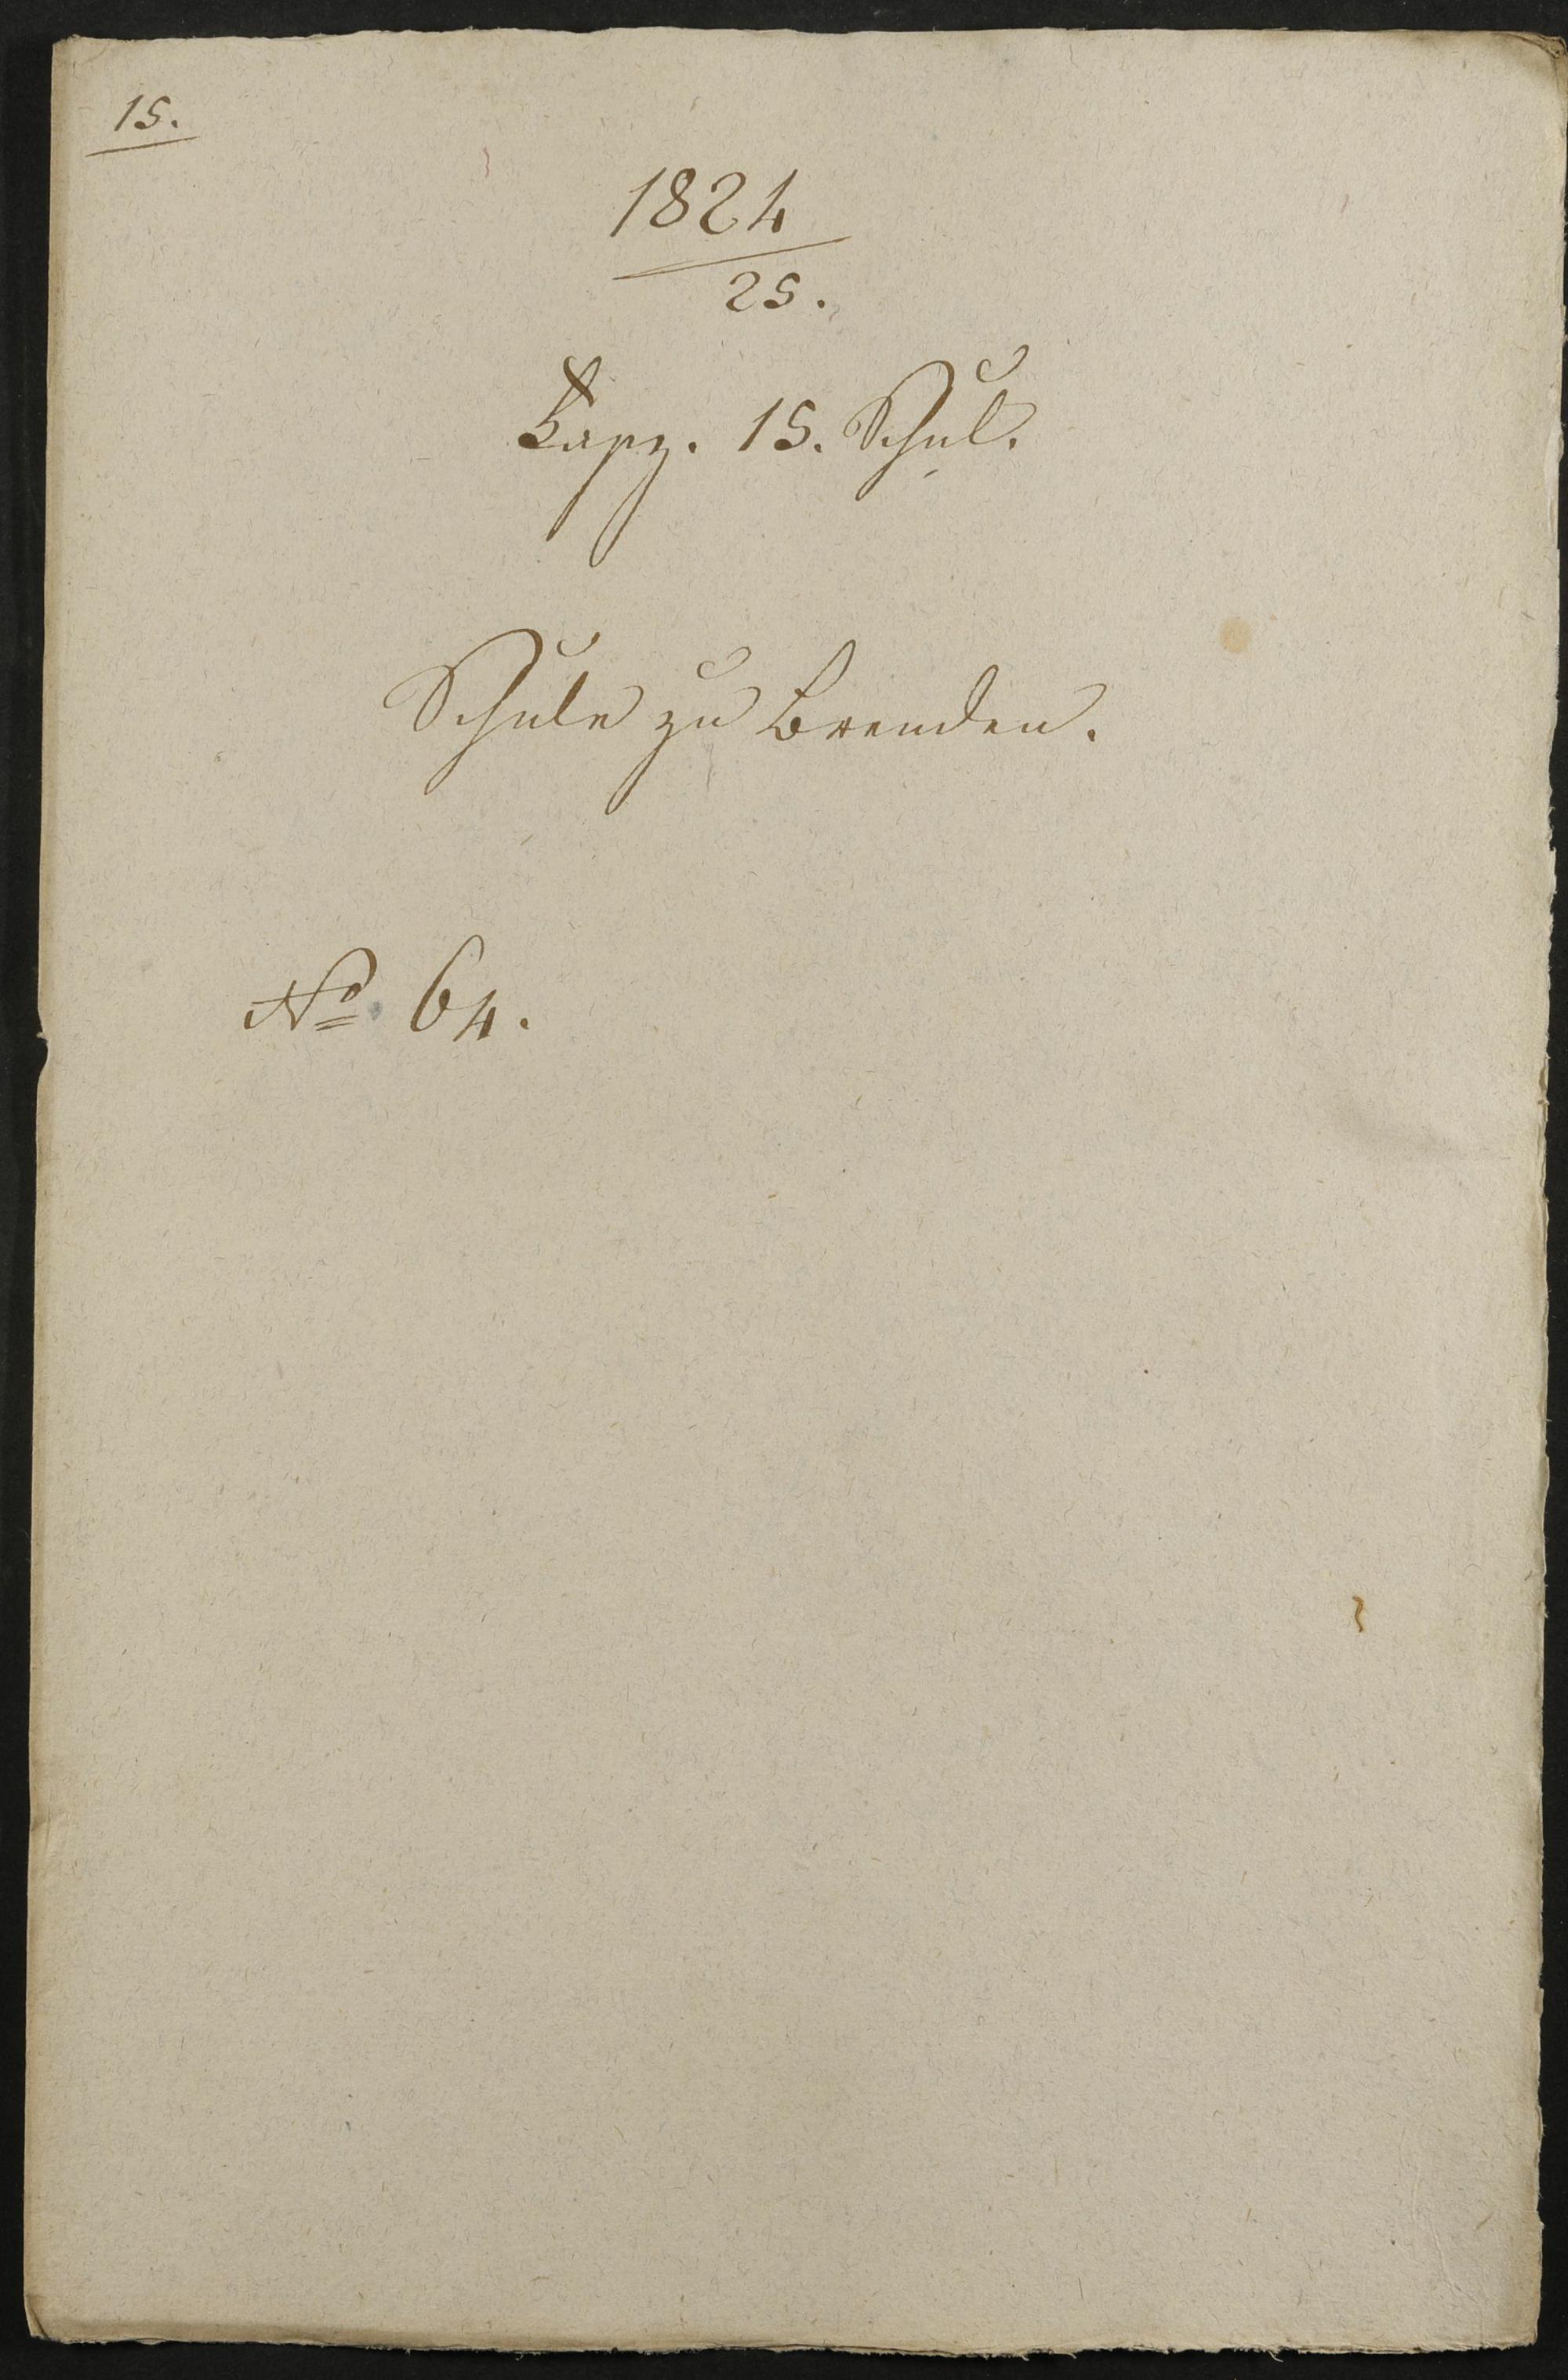 15.
1824
25.
Kapz. 15. Schul.
Schule zu Brenden.
No 64.